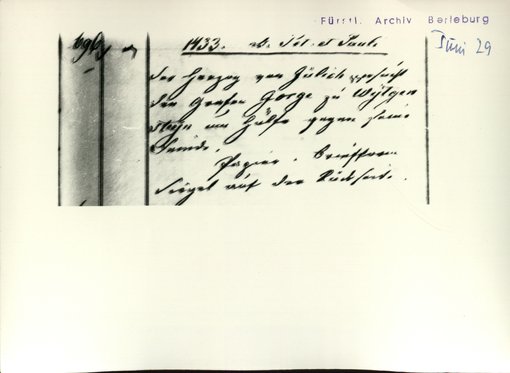 Fürstl. Archiv Berleburg
Juni 29
1433. Pet. et Pauli
der Herzog von Jülich ersucht
den Grafen Görge zu Wytgen
stein um Hülfe gegen seine
Feinde.
Papier. Briefform
Siegel auf der Rückseite.